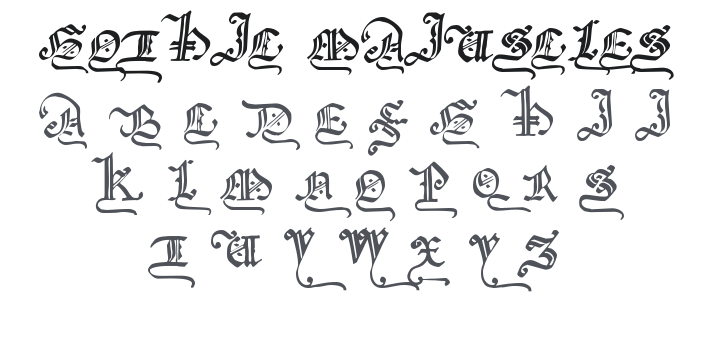 GOTHIC MAJUSCLES
A B C D E F G H I J
K L M N O P Q R S
T U V W X Y Z